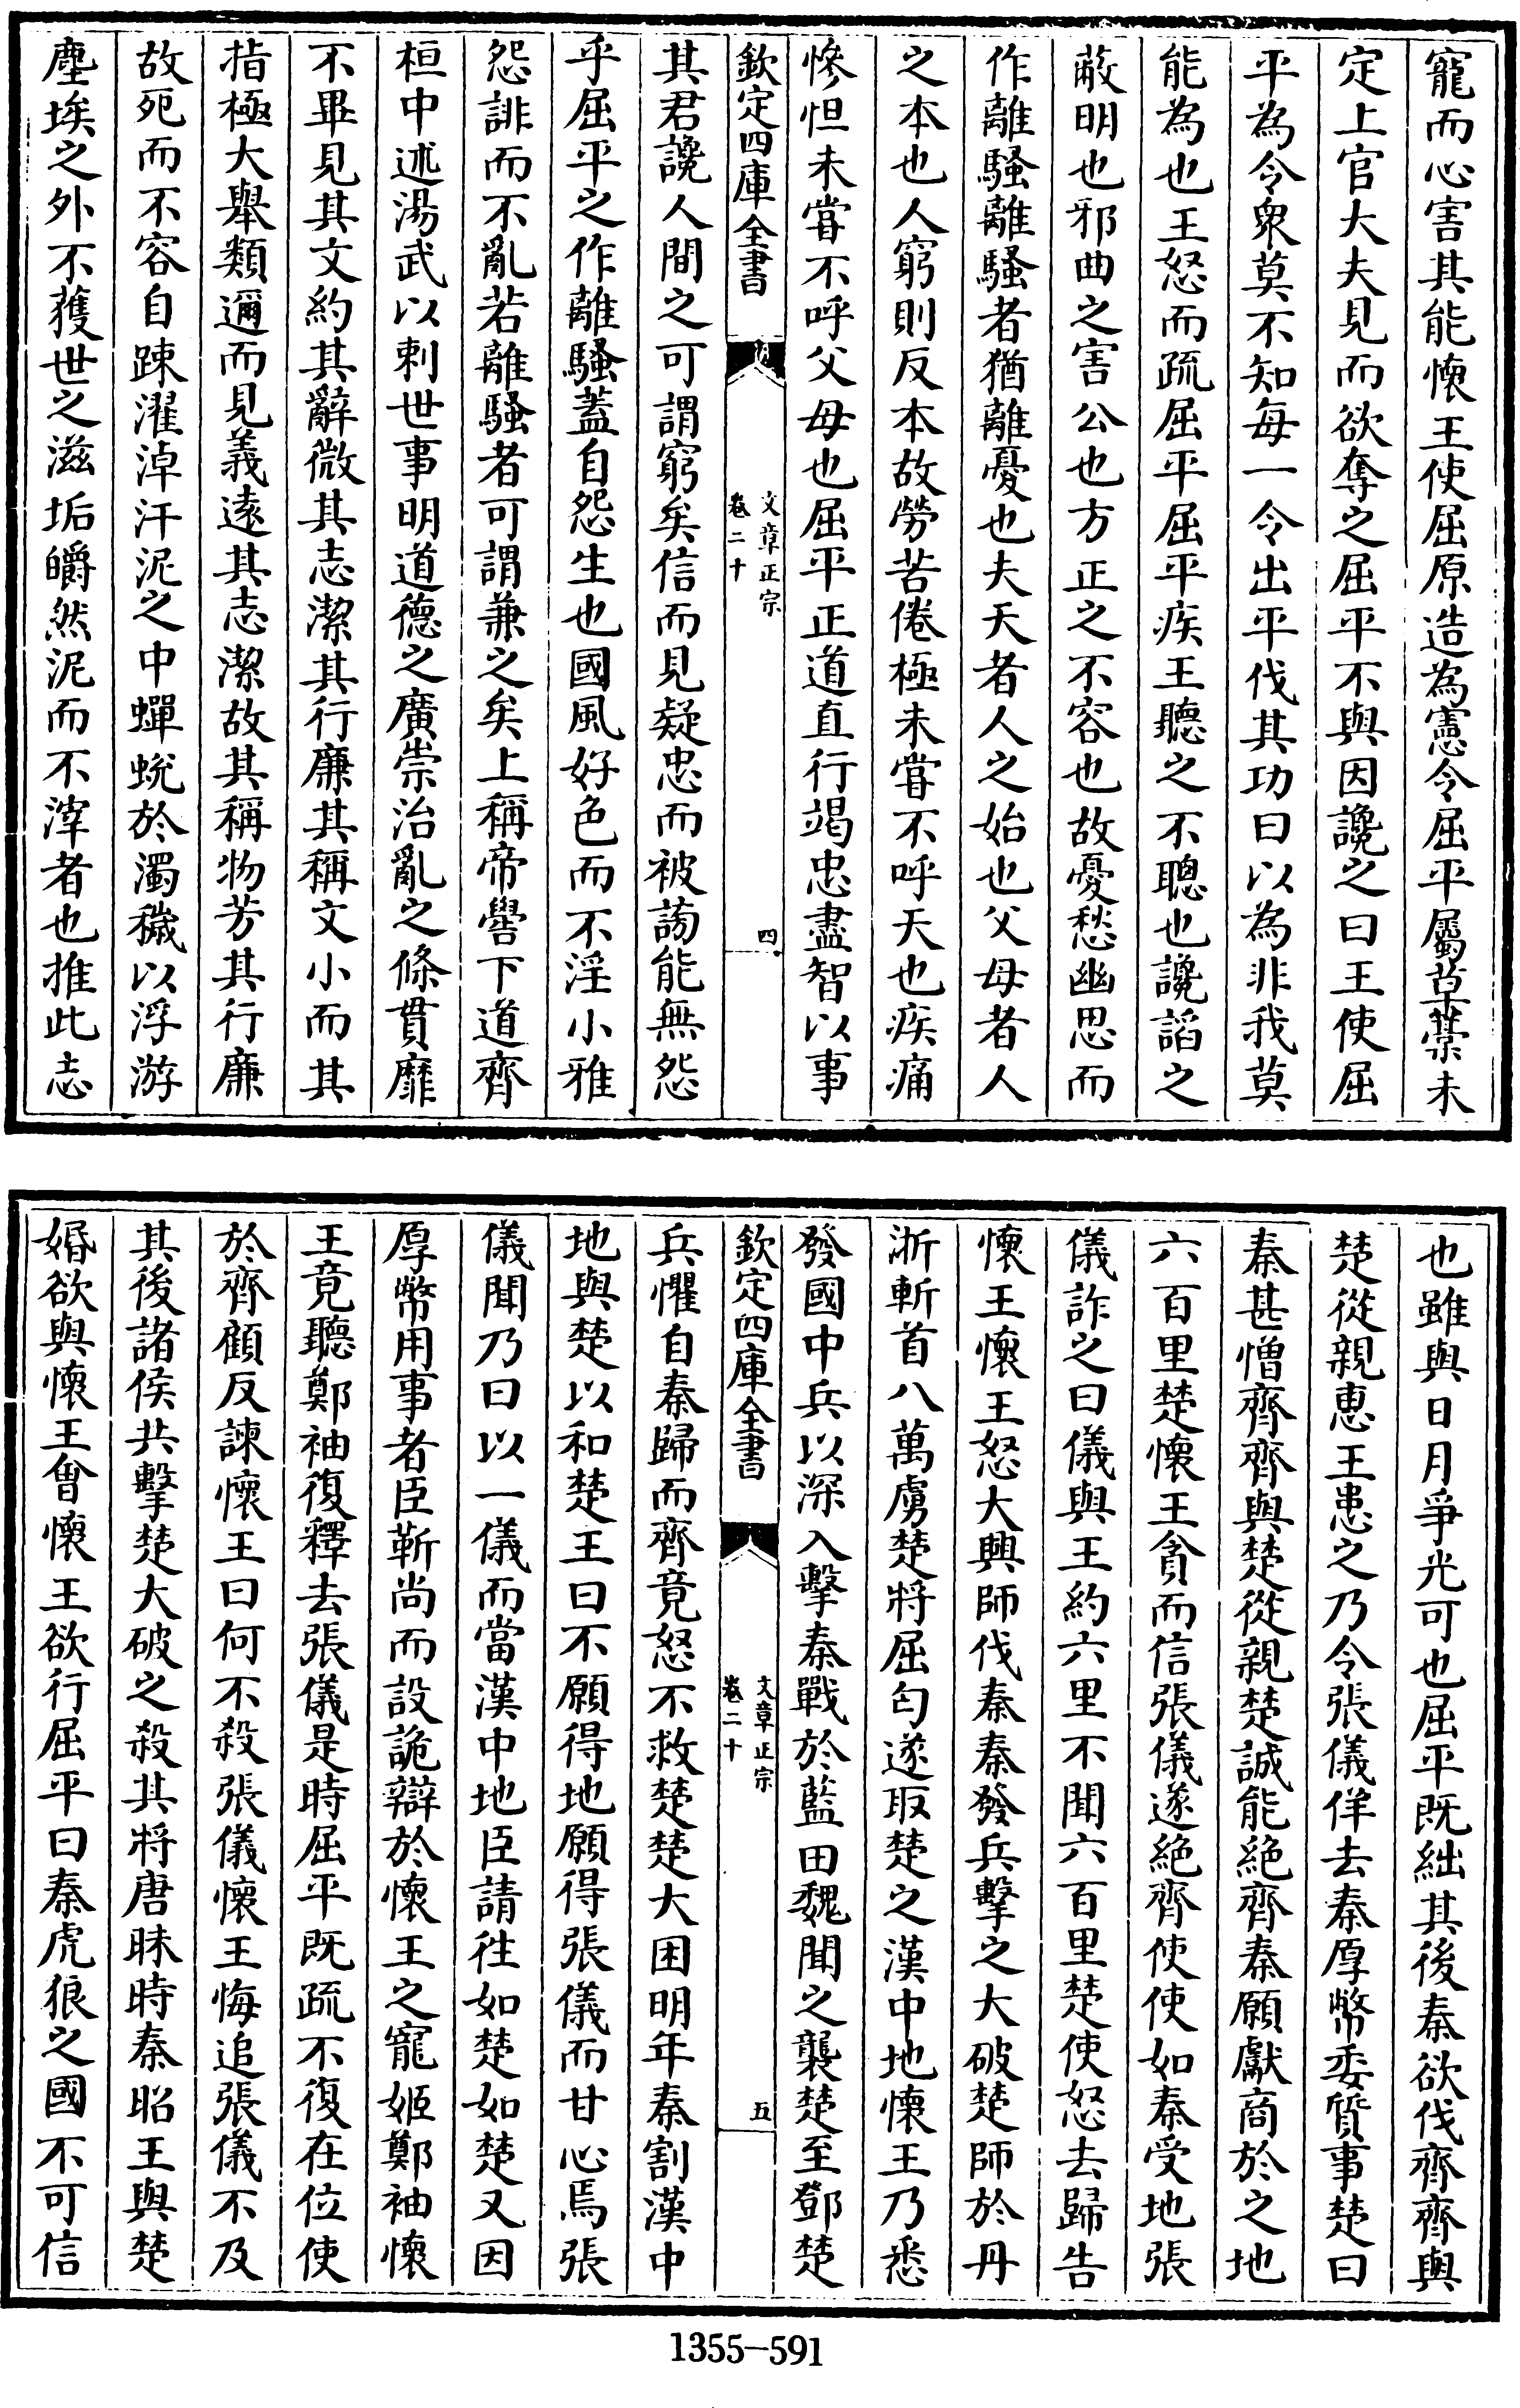 寵而心害其能懷王使屈原造為憲令屈平屬草藁未
定上官大夫見而欲奪之屈平不與因讒之曰王使屈
平為令衆莫不知每一令出平伐其功曰以為非我莫
能為也王怒而疏屈平屈平疾王聽之不聰也讒謟之
蔽明也邪曲之害公也方正之不容也故憂愁幽思而
作離騷離騷者猶離憂也夫天者人之始也父母者人
之本也人窮則反本故勞苦倦極未甞不呼天也疾痛
慘怛未甞不呼父母也屈平正道直行竭忠盡智以事
欽定四庫全書
文章正宗
卷二十
四
其君讒人間之可謂窮矣信而見疑忠而被謗能無怨
乎屈平之作離騷蓋自怨生也國風好色而不淫小雅
怨誹而不亂若離騷者可謂兼之矣上稱帝嚳下道齊
桓中述湯武以刺世事明道德之廣崇治亂之條貫靡
不畢見其文約其辭微其志潔其行廉其稱文小而其
指極大舉類邇而見義遠其志潔故其稱物芳其行廉
故死而不容自踈濯淖汙泥之中蟬蛻於濁穢以浮游
塵埃之外不獲世之滋垢皭然泥而不滓者也推此志
也雖與日月爭光可也屈平既絀其後秦欲伐齊齊與
楚從親惠王患之乃令張儀佯去秦厚幣委質事楚曰
秦甚憎齊齊與楚從親楚誠能絶齊秦願獻商於之地
六百里楚懷王貪而信張儀遂絶齊使使如秦受地張
儀詐之曰儀與王約六里不聞六百里楚使怒去歸告
懷王懷王怒大興師伐秦秦發兵擊之大破楚師於丹
淅斬首八萬虜楚將屈匄遂取楚之漢中地懷王乃悉
發國中兵以深入擊秦戰於藍田魏聞之襲楚至鄧楚
欽定四庫全書
文章正宗
卷二十
五
兵懼自秦歸而齊竟怒不救楚楚大困明年秦割漢中
地與楚以和楚王曰不願得地願得張儀而甘心焉張
儀聞乃曰以一儀而當漢中地臣請徃如楚如楚又因
厚幣用事者臣靳尚而設詭辯於懷王之寵姬鄭袖懷
王竟聽鄭袖復釋去張儀是時屈平既疏不復在位使
於齊顧反諫懷王曰何不殺張儀懷王悔追張儀不及
其後諸侯共擊楚大破之殺其將唐昧時秦昭王與楚
婚欲與懷王會懷王欲行屈平曰秦虎狼之國不可信
1355-591